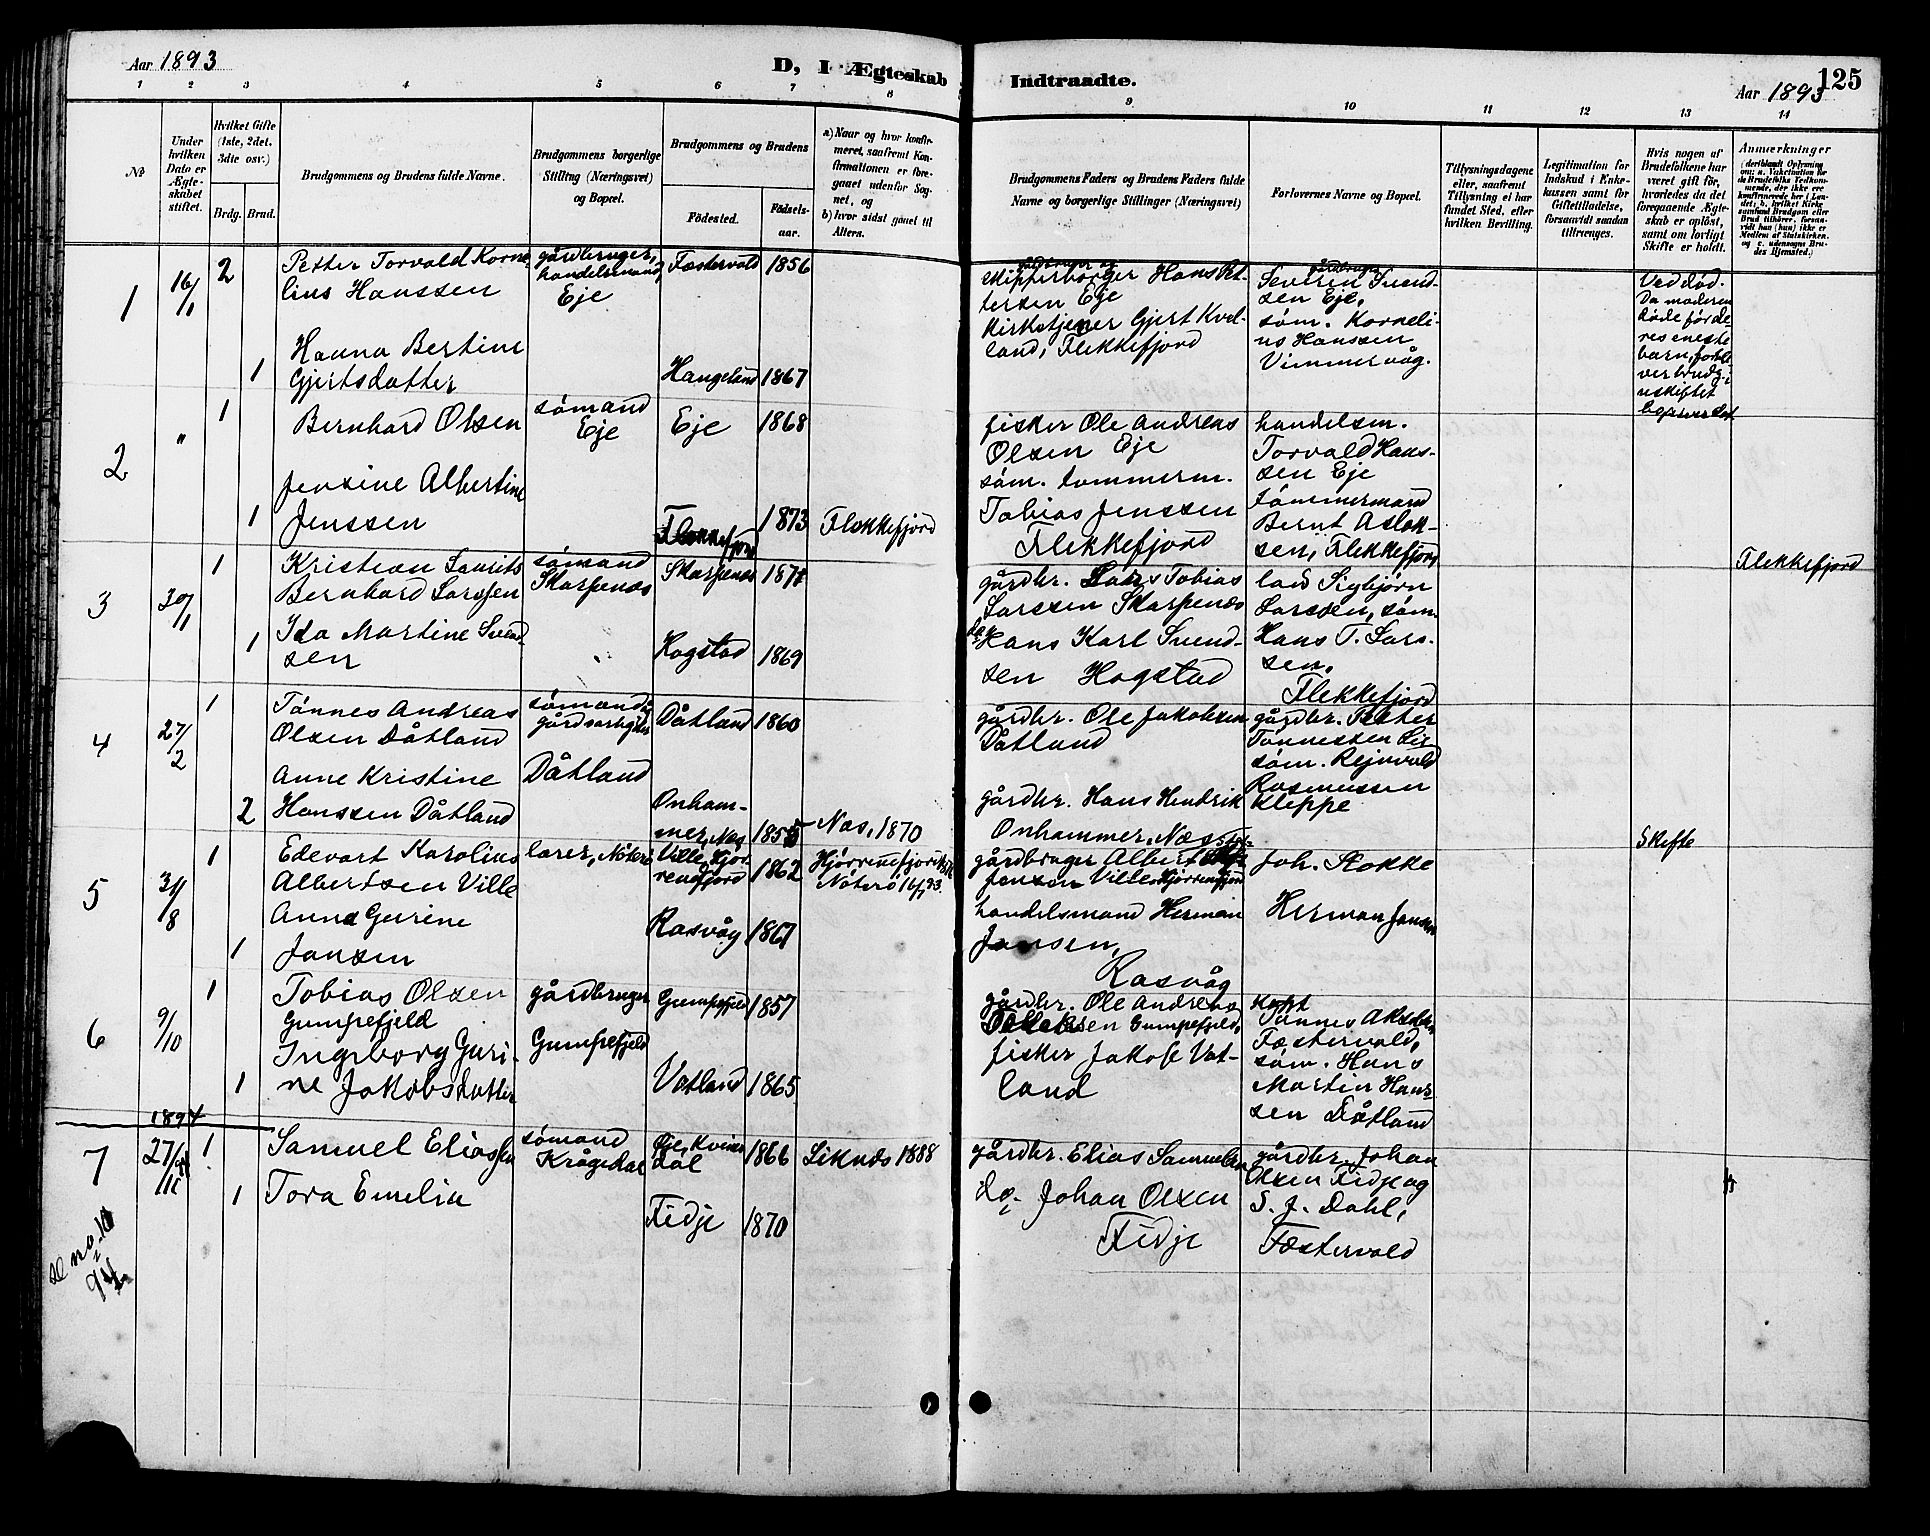 Aar 1893
D, I Ægteskab
Indtraadte.
Aar 1893
125
1 2 3 4 5 6 7 8
9 10 11 12 13 14
No
Under hvilken Dato er Ægteskabet stiftet.
Hvilket Gifte (1ste, 2det, 3die osv.)
Brdg. Brud.
Brudgommens og Brudens fulde Navne.
Brudgommens borgerlige Stilling (Næringsvei) og Bopæl.
Brudgommens og Brudens
Fødested.
Fødsels-aar.
a) Naar og hvor konfirmeret, saafremt Konfirmationen er foregaaet udenfor Sognet, og
b) hvor sidst gaaet til Alters.
Brudgommens Faders og Brudens Faders fulde Navne og borgerlige Stillinger (Næringsvei)
Forlovernes Navne og Bopæl.
Tillysningsdagene eller, saafremt Tillysning ei har fundet Sted, efter hvilken Bevilling.
Legitimation for Indskud i Enkekassen samt for Giftetilladelse, forsaavidt saadan tiltrænges.
Hvis nogen af Brudefolkene har været gift før, hvorledes da det foregaaende Ægteskab er opløst, samt om lovligt Skifte er holdt.
Anmærkninger
1
16/1
2
Petter Torvald Korne-
lius Hanssen
gårdbruger,
handelsmand
Eje
Fæstervold
1856
Skipperborger Hans Pet-
tersen Eje
gårdbruger
Severin Svend-
sen Eje,
Ved død.
Da moderen
døde før de-
res eneste
barn,
1
Hanna Bertine
Gjertsdatter
Haugeland
1867
Kirketjener Gjert Kvel-
land, Flekkefjord
søm. Korneli-
us Hanssen
Vimmervåg.
uskiftet
2
"
1
Bernhard Olsen
sømand
Eje
Eje
1868
fisker Ole Andreas
Olsen Eje
handelsm.
Torvald Hans-
sen Eje
1
Jensine Albertine
Jenssen
Flekkefjord
1873
Flekkefjord
søm. tømmerm.
Tobias Jenssen
Flekkefjord
tømmermand
Bernt Aslak-
sen, Flekkefjord
Flekkefjord
3
30/1
1
Kristian Laurits
Bernhard Larssen
sømand
Skarpenæs
Skarpenæs
1871
gårdbr. Lars Tobias
Larssen Skarpenæs
lods Sigbjørn
Larssen, søm.
1
Ida Martine Svend-
sen
Hogstad
1869
do. Hans Karl Svend-
sen Hogstad
Hans T. Lars-
sen.
Flekkefjord
4
27/2
1
Tønnes Andreas
Olsen Dåtland
sømand,
gårdsarbejder
Dåtland
Dåtland
1860
gårdbr. Ole Jakobsen
Dåtland
gårdbr. Petter
Tønnessen
søm. Rejnvald
Rasmussen
Kleppe
2
Anne Kristine
Hanssen Dåtland
Onham-
mer, Næs
1855
Næs, 1870
gårdbr. Hans Hendrik
Onhammer, Næs
Skifte
5
31/8
1
Edevart Karolius
Albertsen Ville
lærer, Nøterø
Ville, Hjør-
rendfjord
1862
Hjørrendfjord
Nøterø 16/7 93.
gårdbruger Albert
Jensen Ville Hjørrendfjord
Joh. Stokke
1
Anna Gurine
Jansen
Rasvåg
1867
handelsmand Herman
Jansen,
Rasvåg
Herman Jansen
6
9/10
1
Tobias Olsen
Gumpefjeld
gårdbruger
Gumpefjeld
Gumpefjeld
1857
gårdbr. Ole Andreas
Gumpefjeld,
kapt.
Tønnes
Fæstervold,
1
Ingeborg Guri-
ne Jakobsdatter
Vatland
1865
fisker Jakob Vat-
land
søm. Hans
Martin Hans-
sen Dåtland
1894
7
27/11 94
1
Samuel Eliassen
sømand
Krågedal
Øje, Kvines-
dal
1866
Liknæs 1888
gårdbr. Elias Samuelsen
gårdbr. Johan
Olsen Fidje og
1
Tora Emelia
Fidje
1870
do. Johan Olsen
Fidje
S. J. Dahl,
Fæstervold
se no. 10
94